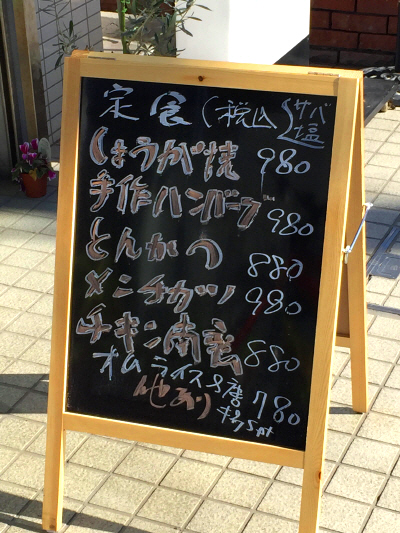 定食(税込)サバ塩
しょうが焼 980
手作ハンバーグ 980
とんかつ 880
メンチカツ 980
チキン南蛮 880
オムライス&唐 780
他あり